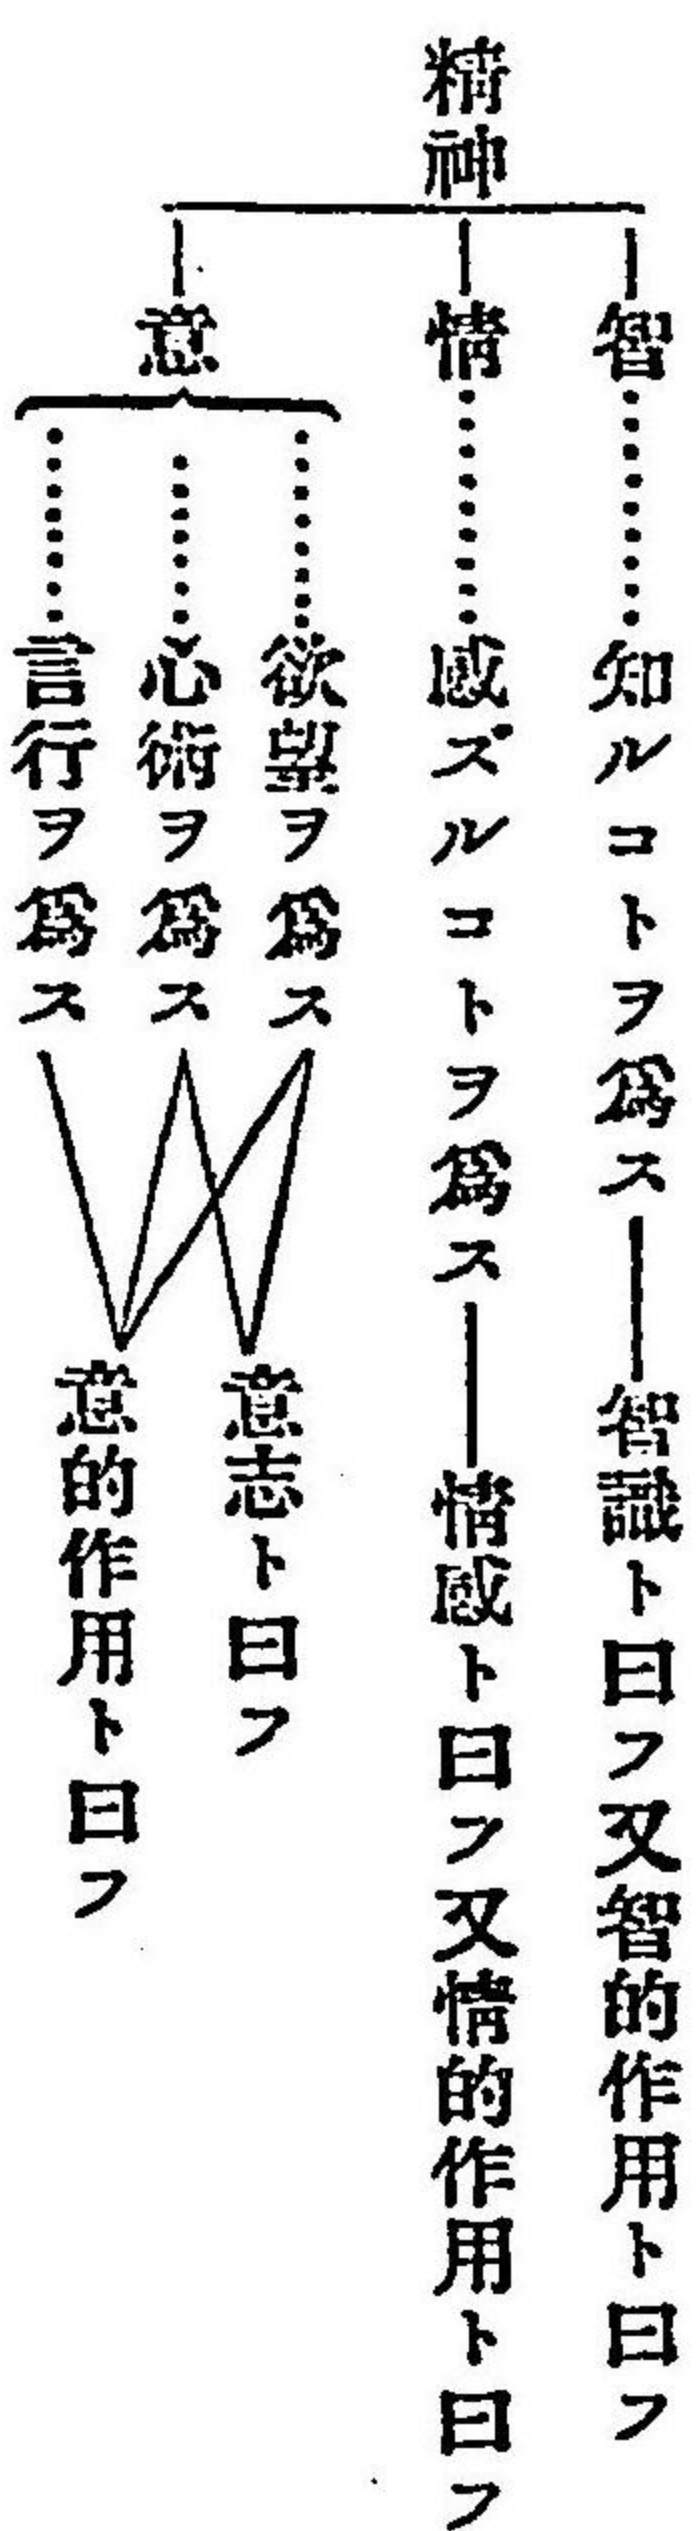 精神
智………知ルコトヲ爲ス──智識ト曰フ又智的作用ト曰フ
情………感ズルコトヲ爲ス──情感ト曰フ又情的作用ト曰フ
意
欲望ヲ爲ス
心術ヲ爲ス
言行ヲ爲ス
意志ト曰フ
意的作用ト曰フ